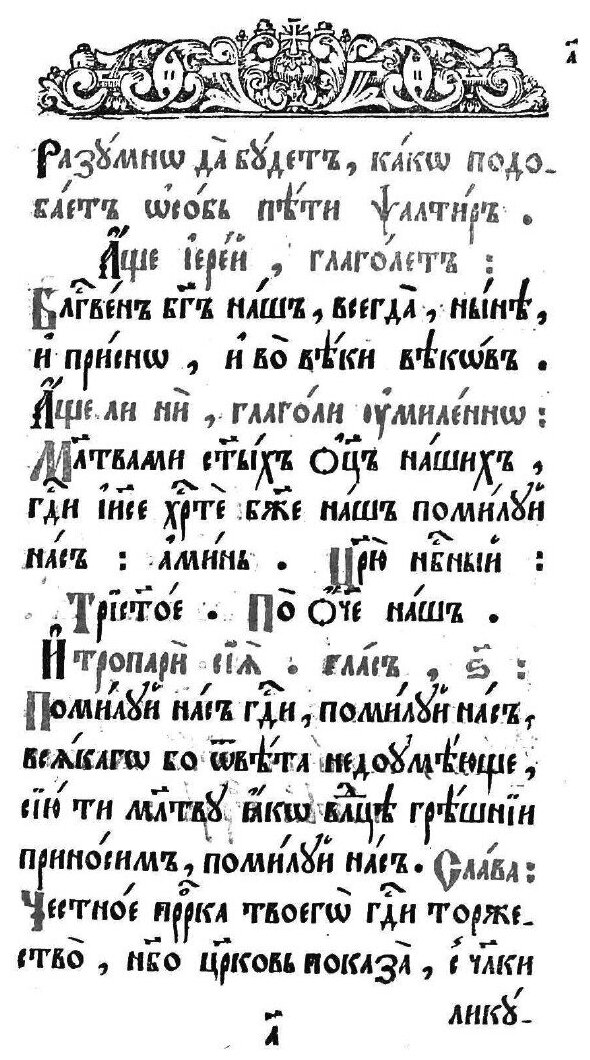 а҃
Разꙋ́мнѡ да̀ бꙋ́детъ, ка́кѡ подо-
ба́етъ ѡ҆со́бь пѣ́ти ѱалти́рь.
А҆́ще і҆ере́й, глаго́летъ:
Бл҃гове́нъ бг҃ъ на́шъ, всегда̀, ны́нѣ,
и҆ при́снѡ, и҆ во̀ вѣ́ки вѣкѡ́въ.
А҆́ще ли нѝ, глаго́ли ᲂу҆миле́ннѡ:
Мл҃твами ст҃ы́хъ ѻ҆ц҃ъ на́шихъ,
гдⷭ҇и і҆и҃се хрⷭ҇тѐ бж҃е на́шъ поми́лꙋй
на́съ: а҆ми́нь. Цр҃ю̀ нбⷭ҇ный:
Трист҃о́е. По̀ ѻ҆́ч҃е на́шъ.
И҆ тропарѝ сїѧ̑. гла́съ, ѕ҃:
Поми́лꙋй на́съ гдⷭ҇и, поми́лꙋй на́съ,
всѧ́кагѡ бо ѿвѣ́та недоꙋмѣ́юще,
сїю́ ти мл҃твꙋ ꙗ҆́кѡ влⷣцѣ грѣ́шнїи
прино́симъ, поми́лꙋй на́съ. Сла́ва:
Честно́е прⷪ҇рка твоегѡ̀ гдⷭ҇и торже-
ство̀, нб҃о цр҃ковь показа̀, с̾ чл҃ки
ликꙋ́-
а҃